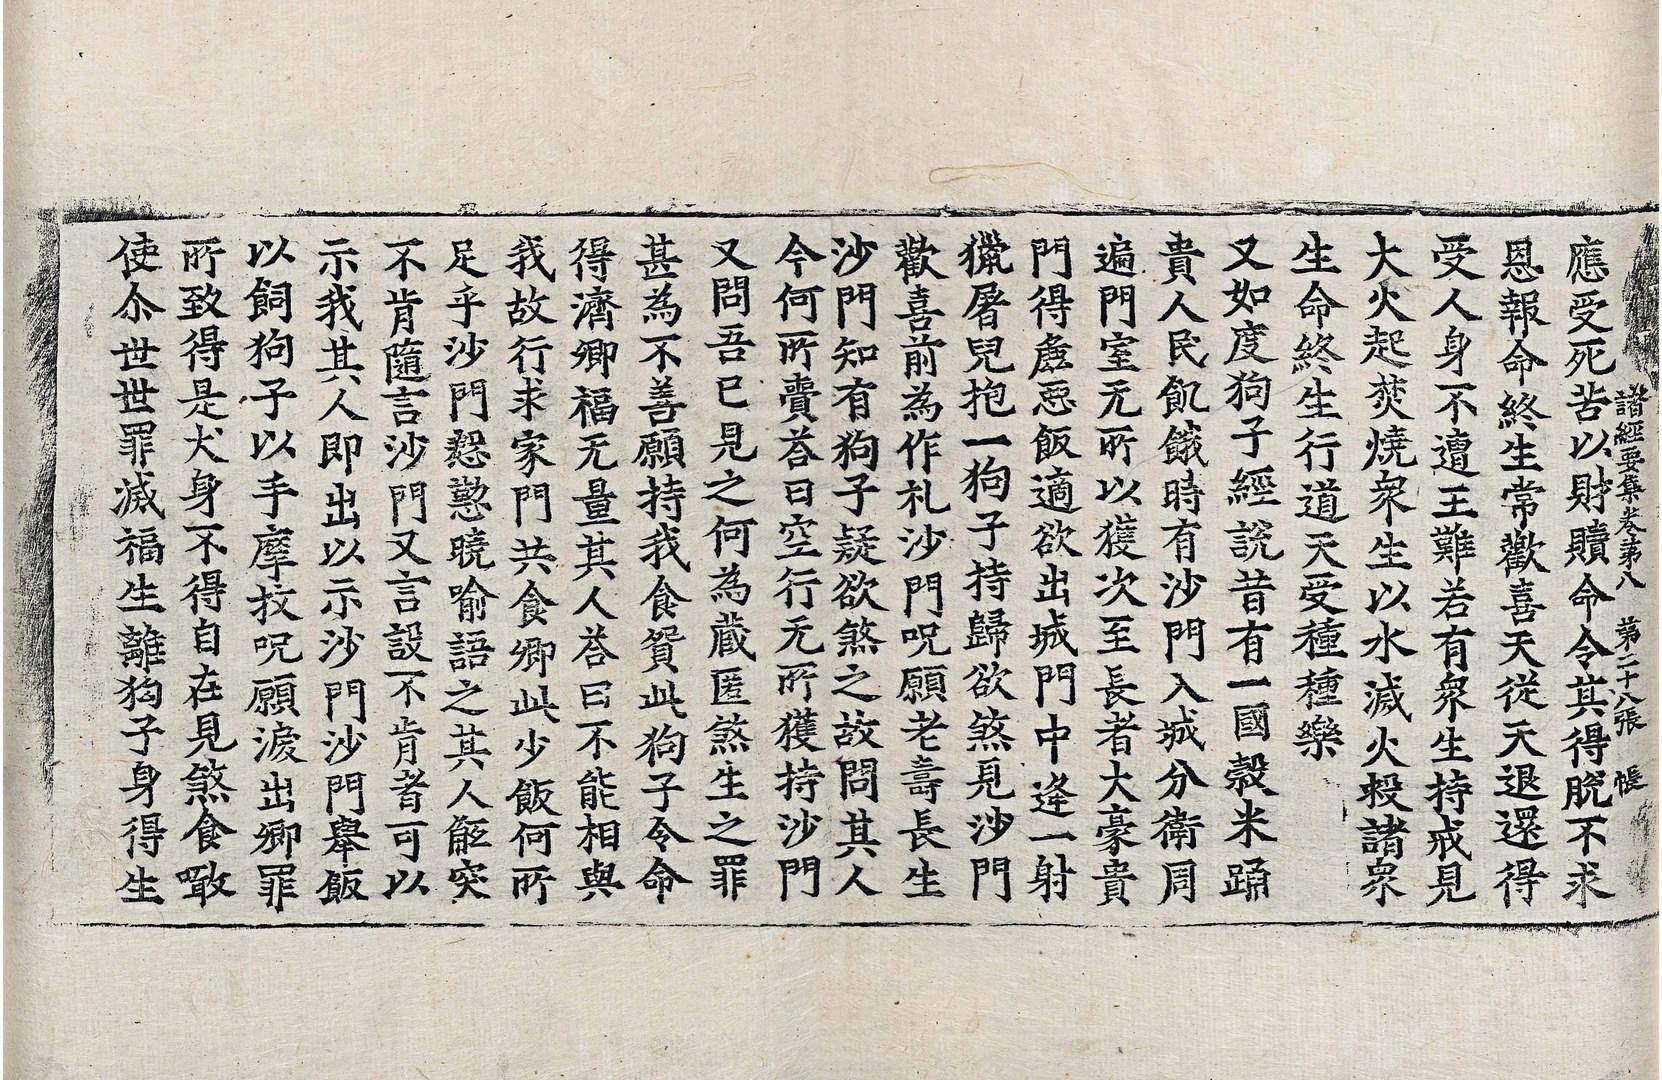 諸經要集卷第八 第二十八張 帳
應受死苦以財贖命令其得脫不求
恩報命終生常歡喜天從天退還得
受人身不遭王難若有衆生持戒見
大火起焚燒衆生以水滅火救諸衆
生命終生行道天受種種樂
又如度狗子經說昔有一國穀米踊
貴人民飢餓時有沙門入城分衛周
遍門室无所以獲次至長者大豪貴
門得麁惡飯適欲出城門中逢一射
獵屠兒抱一狗子持歸欲煞見沙門
歡喜前為作礼沙門呪願老壽長生
沙門知有狗子疑欲煞之故問其人
今何所賷荅曰空行无所獲持沙門
又問吾已見之何為藏匿煞生之罪
甚為不善願持我食貿此狗子令命
得濟卿福无量其人荅曰不能相與
我故行求家門共食卿此少飯何所
足乎沙門懇懃曉喻語之其人觝突
不肯隨言沙門又言設不肯者可以
示我其人即出以示沙門沙門舉飯
以飼狗子以手摩抆呪願淚出卿罪
所致得是犬身不得自在見煞食噉
使尒世世罪滅福生離狗子身得生